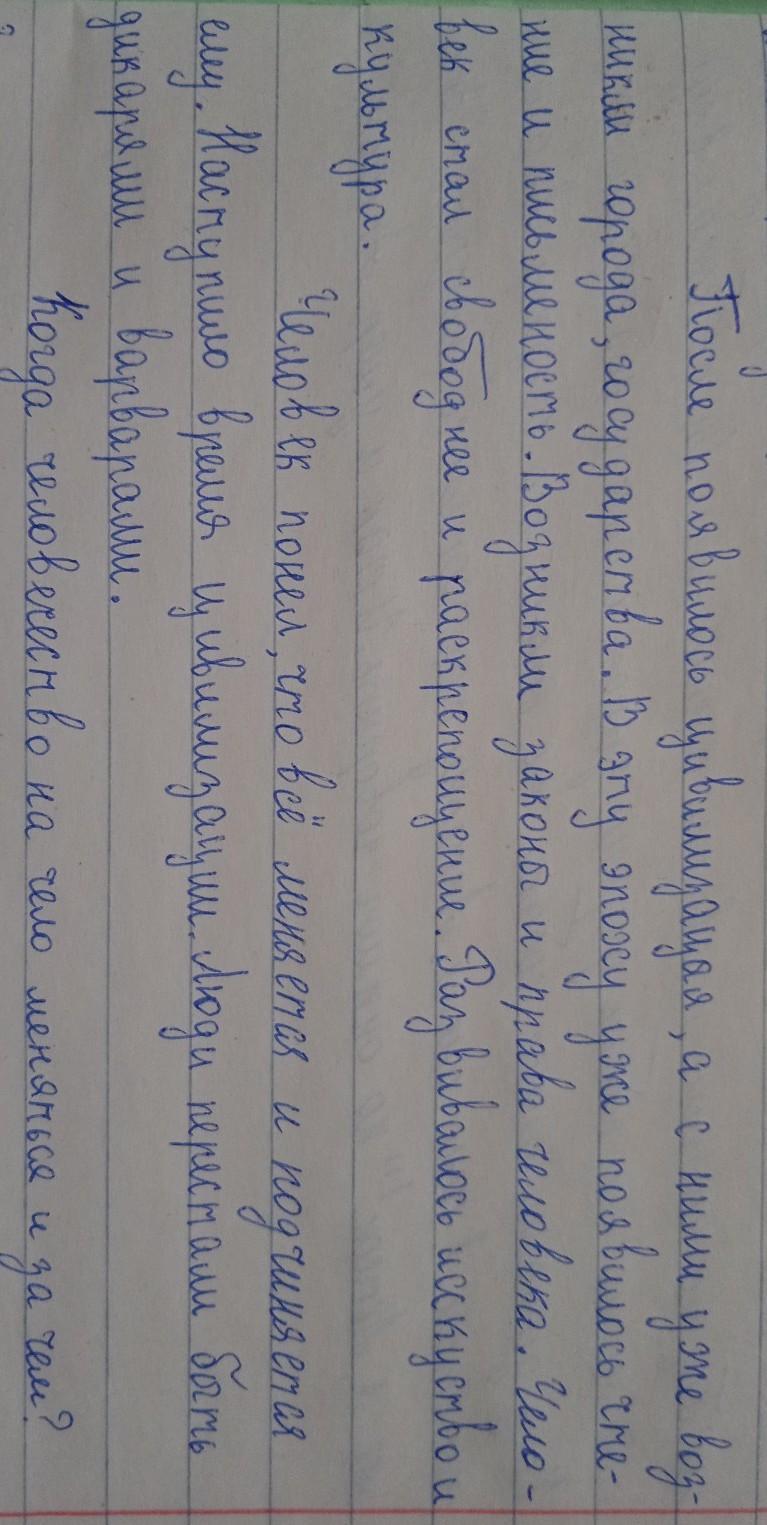 После появилось цивилизацая, а с ними уже воз-
никли города, государства. В эту эпоху уже появилось чте-
ние и письменость. Возникли законы и права человека. Чело-
век стал свободнее и раскрепощение. Развивалось исскуство и
культура.
Человек понел, что всё меняется и подчиняется
ему. Наступило время цивилизации. Люди перестали быть
дикарями и варварами.
Когда человечество на чело меняться и за чем?